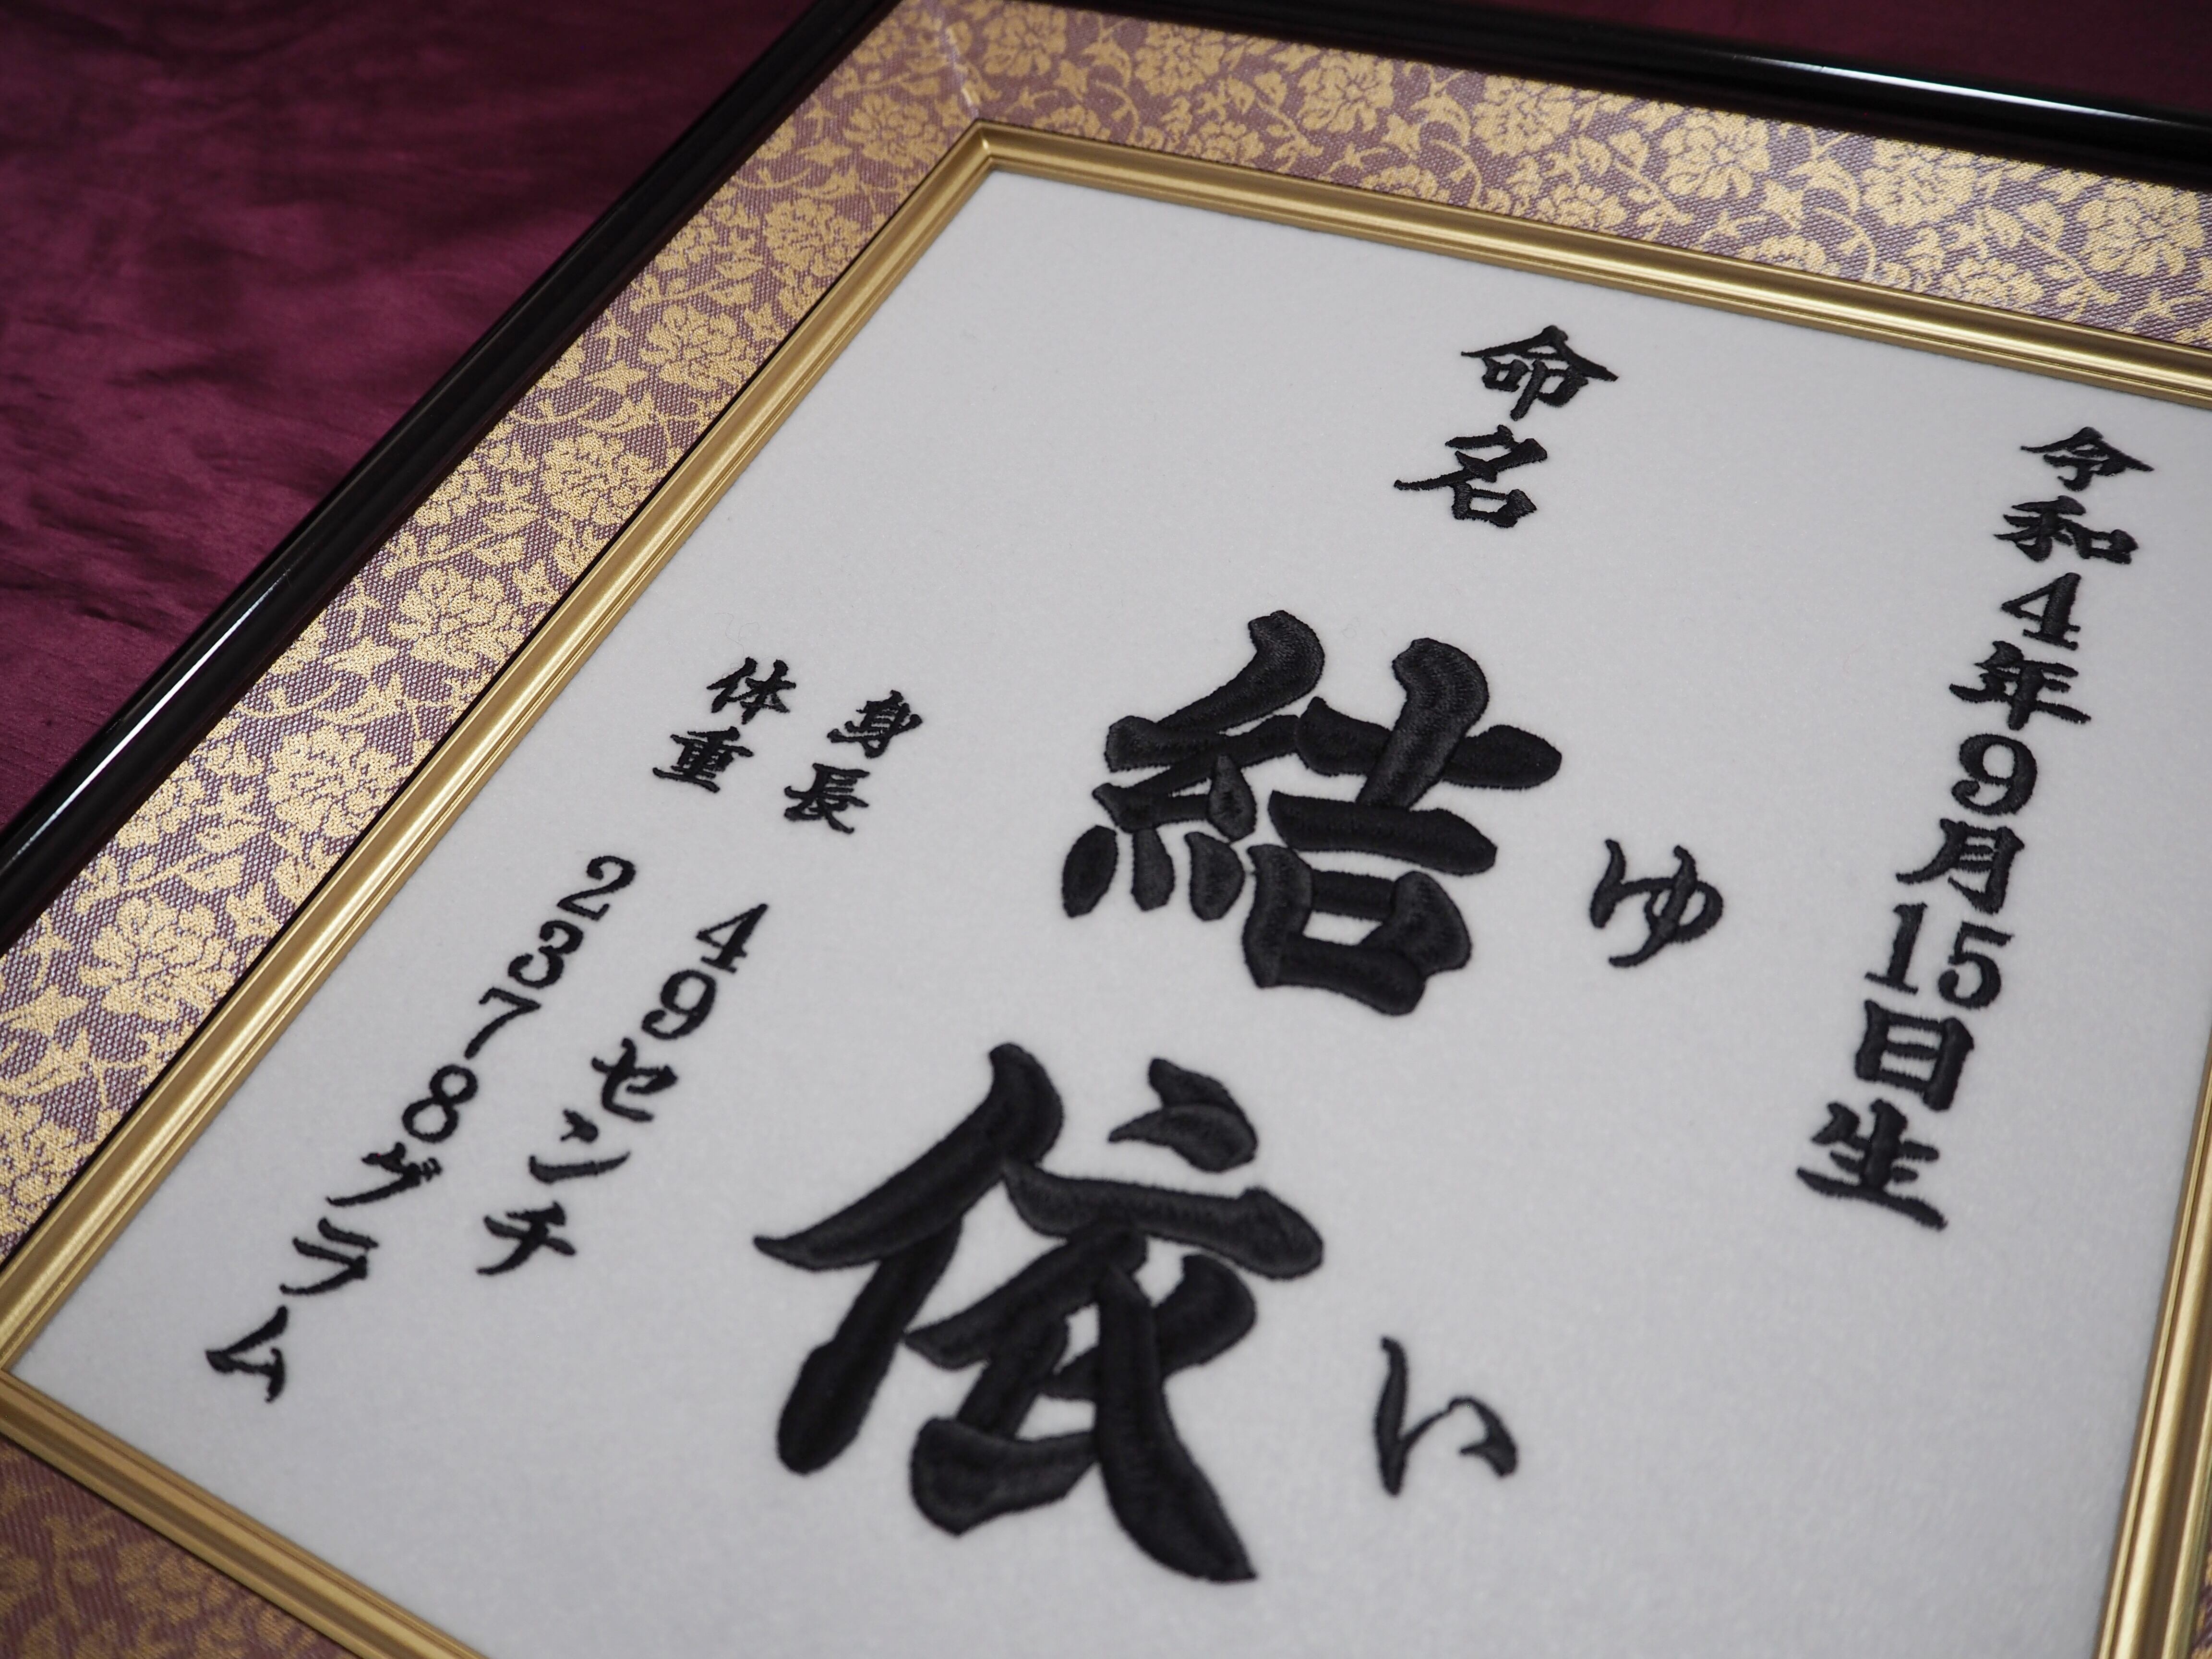 令和4年9月15日生
命名
ゆい
結依
身長 49センチ
体重 2378グラム